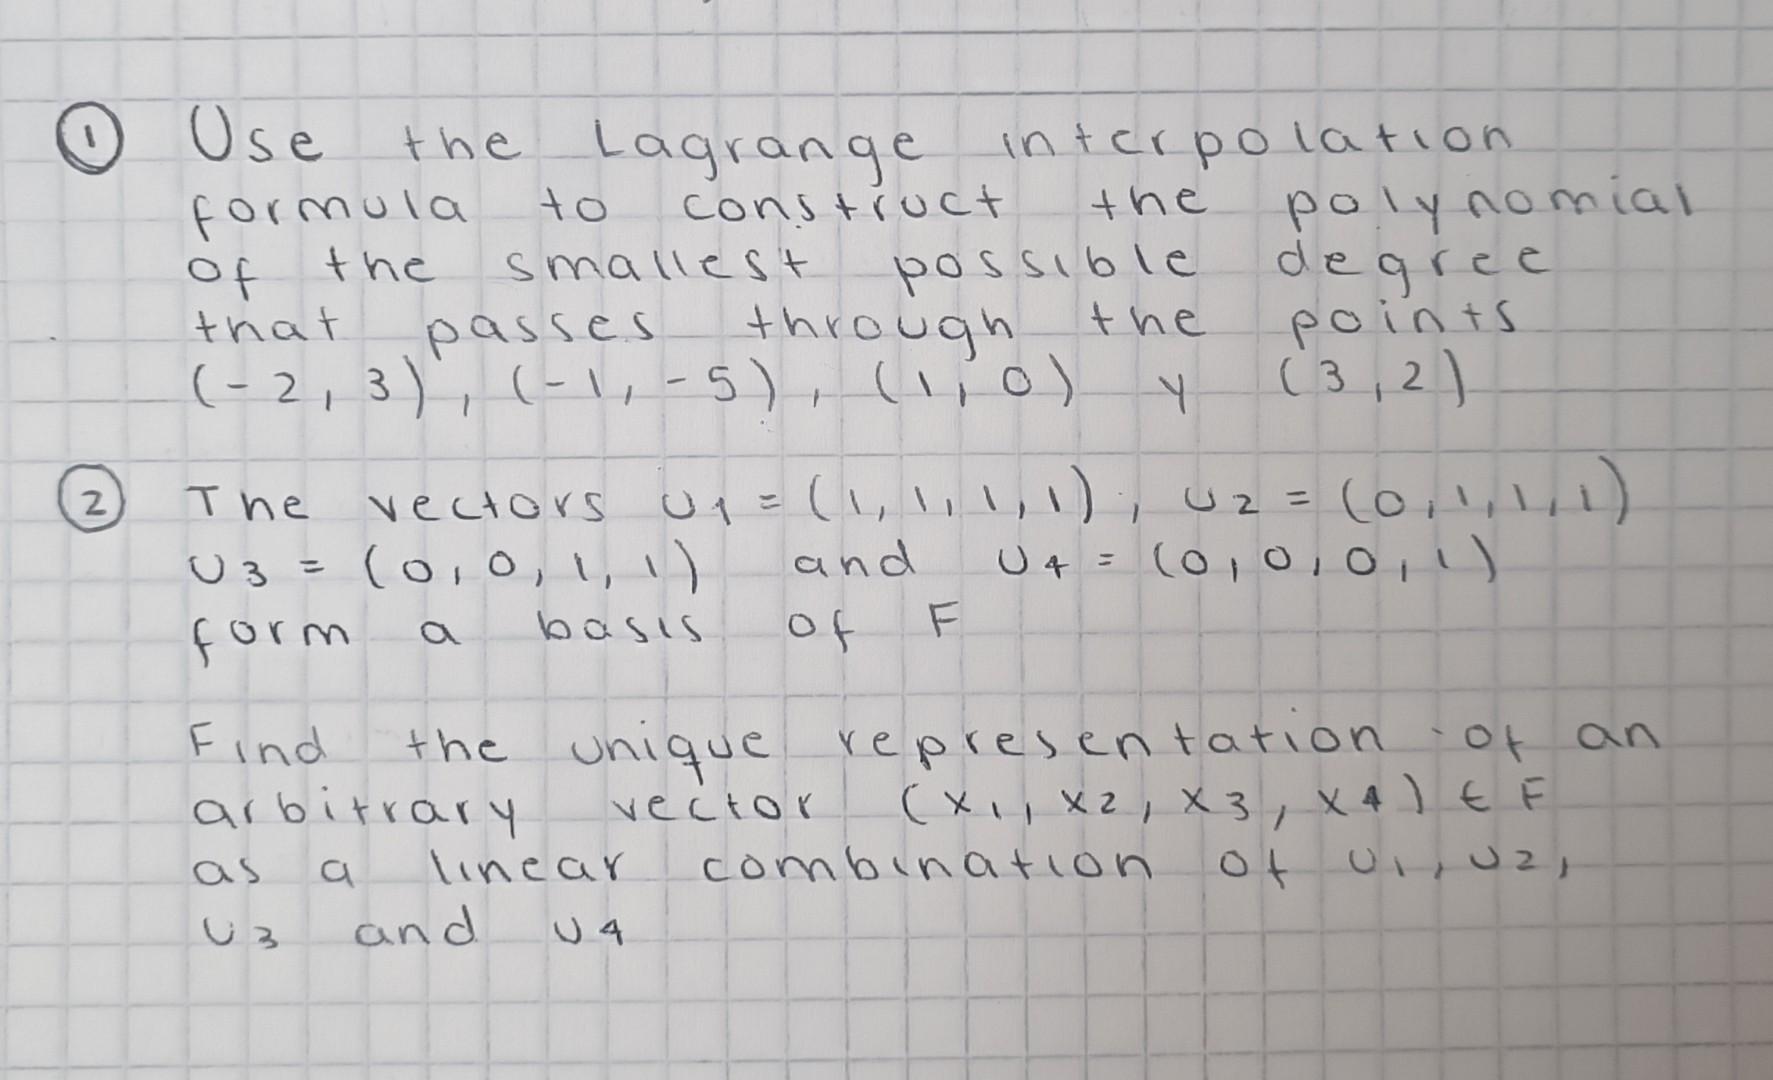 ① Use the Lagrange interpolation
formula to construct the polynomial
of the smallest possible degree
that passes through the points
(-2, 3), (-1, -5), (1, 0) y (3, 2)
② The vectors u1 = (1, 1, 1, 1), u2 = (0, 1, 1, 1)
u3 = (0, 0, 1, 1) and u4 = (0, 0, 0, 1)
form a basis of F
Find the unique representation of an
arbitrary vector (x1, x2, x3, x4) ∈ F
as a linear combination of u1, u2,
u3 and u4